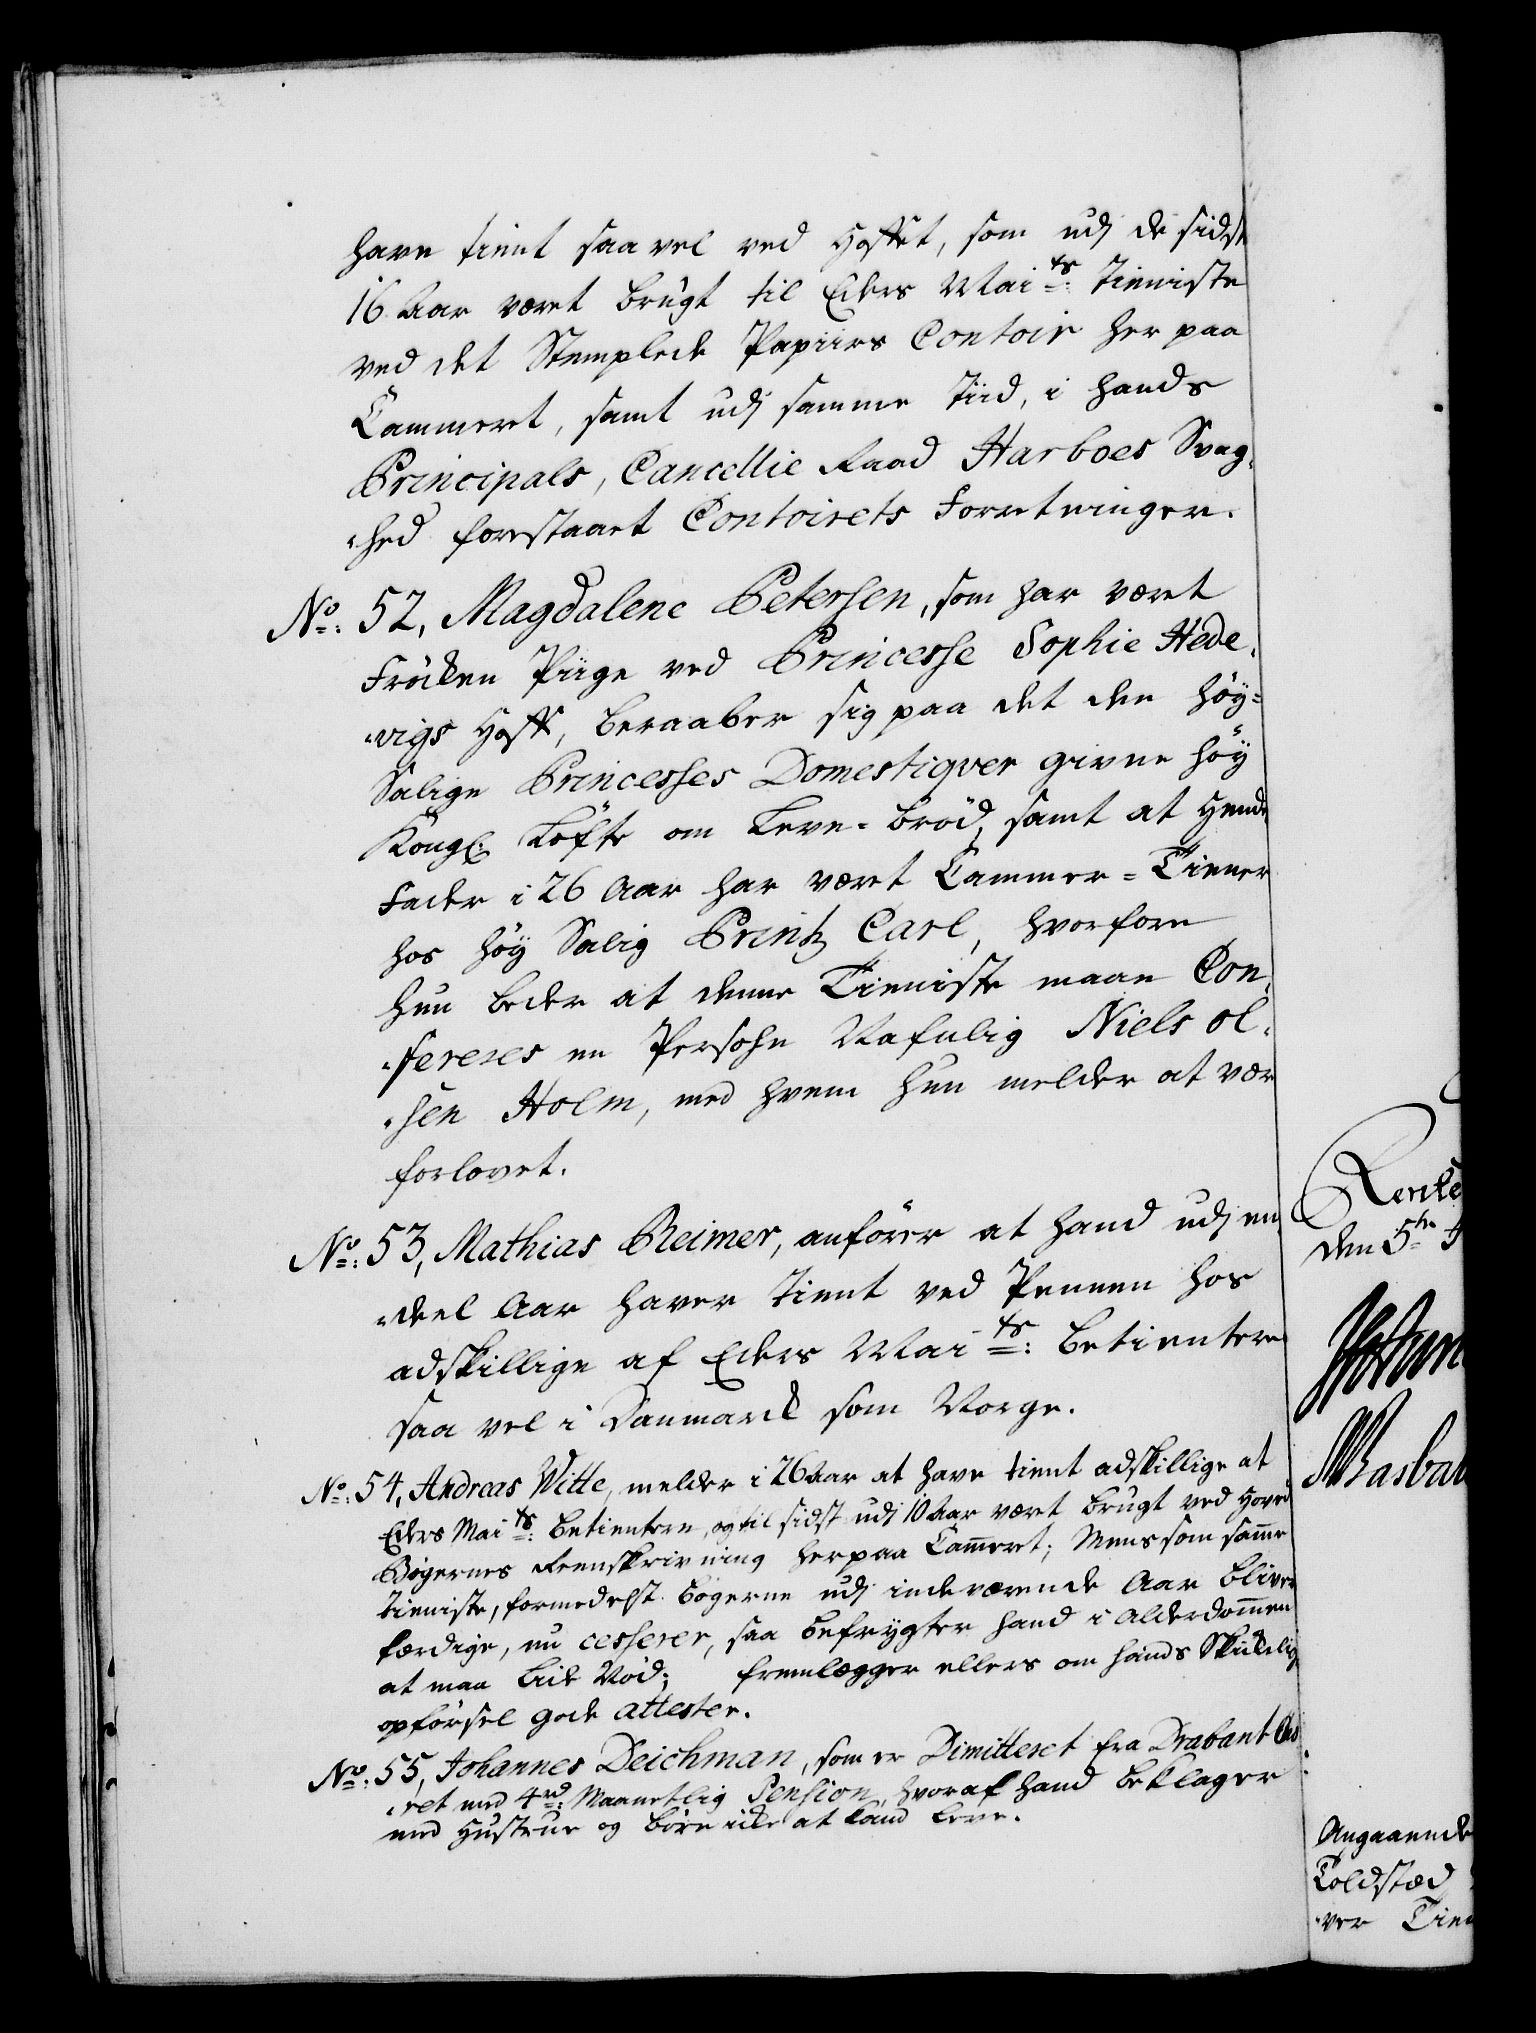 have tient saavel ved Hoffet, som udj de sidst
16 Aar været brugt til Eders Mai^ts: Tieniste
ved det Stemplede Papiirs Contoir her paa
Cammeret, samt udj samme Tiid, i hands
Principals, Cancellie Raad Harboes Svag,
"hed forestaaet Contoirets Forretninger.
No: 52, Magdalene Petersen, som har været
Fröcken Piige ved Princesse Sophie Hede,
"vigs Hoff, beraaber sig paa det den höy=
Salige Princesses Domestiqver givne höy
Kongl: Löfte om Leve-bröd, samt at Hendes
Fader i 26 Aar har været Cammer=Tiener
hos höy Salig Printz Carl, hvorfore
hun beder at denne Tieniste maae Con,
"fereres en Persohn Nafnlig Niels Ol,
"sen Holm, med hvem hun melder at være
forlovet.
No: 53, Mathias Reimer, anförer at hand udj en
"deel Aar haver tient ved Pennen hos
adskillige af Eders Mai^ts: betientere
saa vel i Danmarck som Norge.
No: 54, Andreas Witte, melder i 26 Aar at have tient adskillige af
Eders Mai^ts: betientere, og til sidst udj 10 Aar vært brugt ved Hoved
Bögernes Reenskrivning her paa Cam̄eret; Mens som sam̄e
tieniste, formedelst bögerne udj indeværende Aar bliver
færdige, nu cesserer, saa befrygter hand i Alderdom̄en
at maa lide Nöd; fremlægger ellers om hands Skikkelig
opförsel gode attester.
No: 55, Johannes Deichman, som er Dimitteret fra Drabant
"ret med 4 rd: Maanetlig Pension, hvoraf hand beklager
med Hustrue og börn icke at kand leve.
den 5^te
Angaaende
Toldsted
"ver